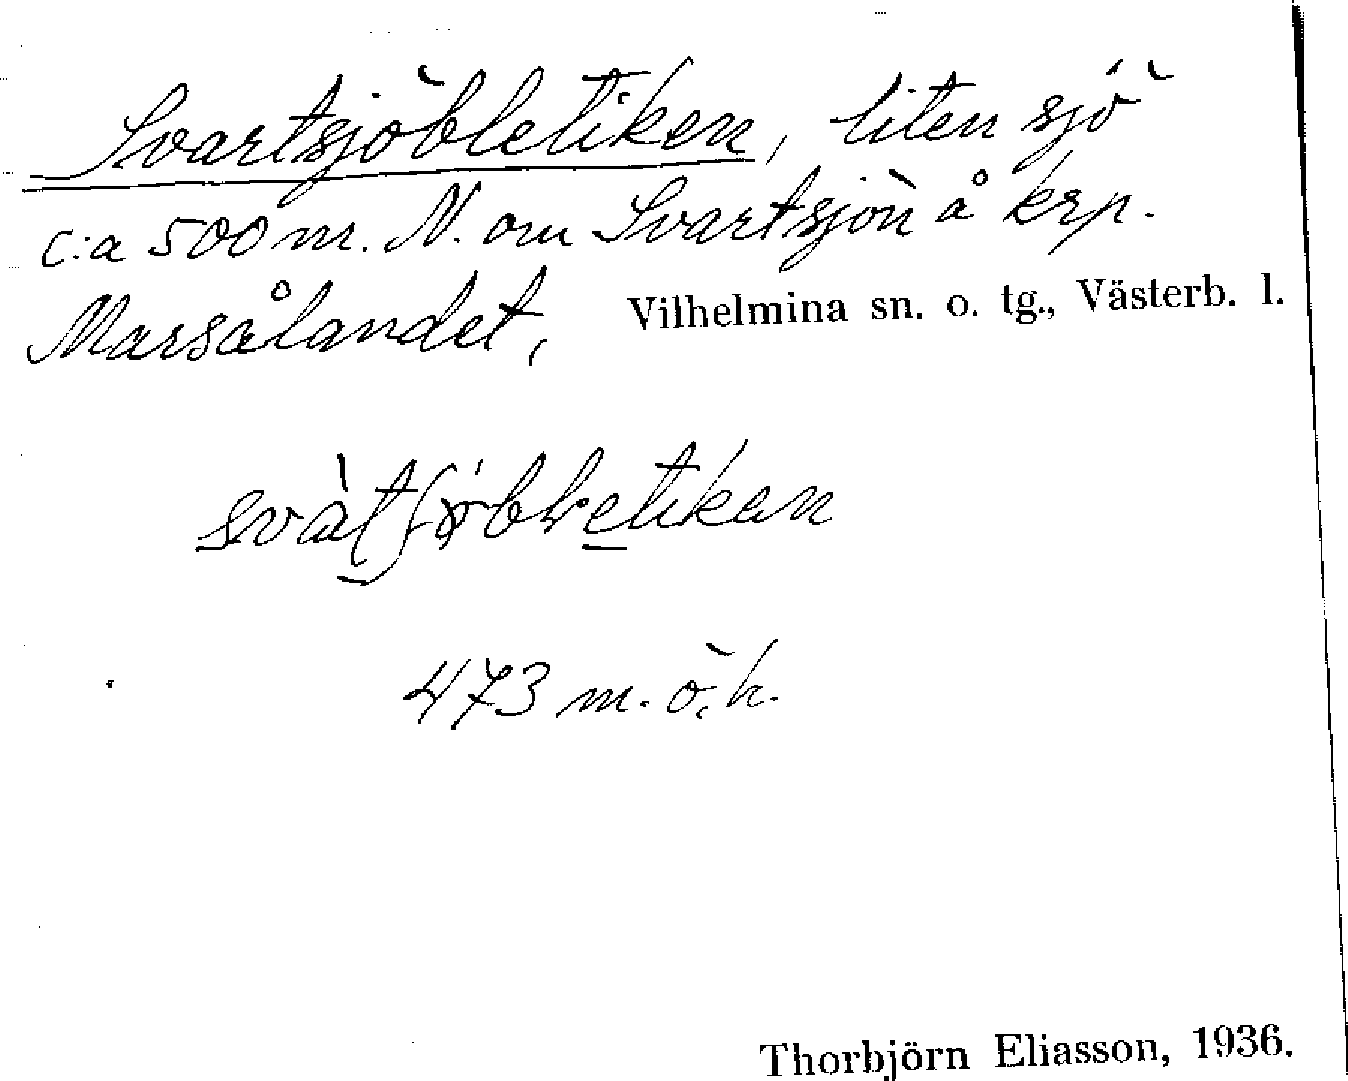 Svartsjöbletiken, liten sjö
c:a 500 m. N. om Svartsjön å krp.
Marsålandet, Vilhelmina sn. o. tg., Västerb. l.
473 m. ö. h.
Thorbjörn Eliasson, 1936.